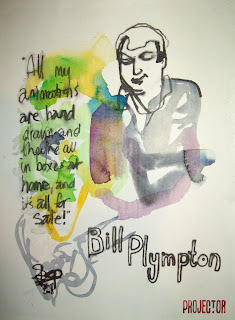 "All my
animations
are hand
drawn and
they're all
in boxes at
home, and
it's all for
sale!"
Bill Plympton
PROJECTOR